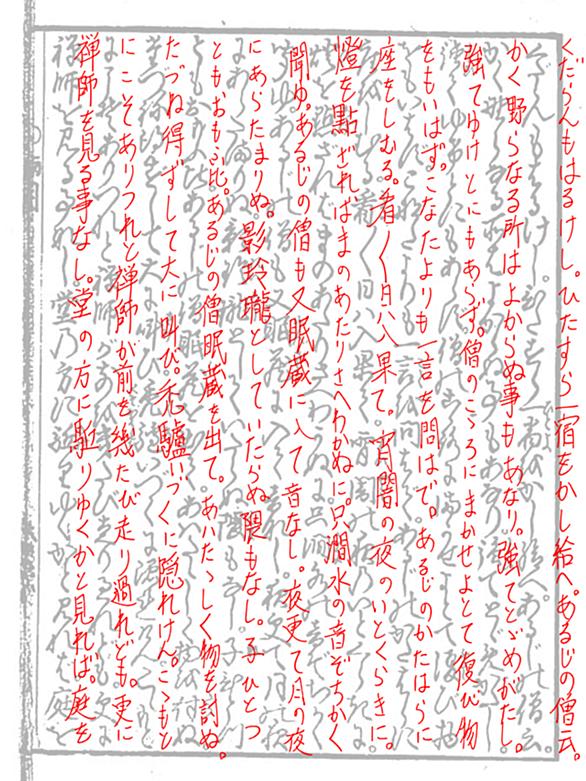 くだらんもはるけし。ひたすら一宿をかし給へ。あるじの僧云。
かく野らなる所はよからぬ事もあなり。強てとゞめがたし。
強てゆけとにもあらず。僧のこゝろにまかせよとて復び物
をもいはず。こなたよりも一言を問はで。あるじのかたはらに
座をしむる。看〱日は入果て。宵闇の夜のいとくらきに。
燈を點ざればまのあたりさへわかぬに。只澗水の音ぞちかく
聞ゆ。あるじの僧も又眠蔵に入て音なし。夜更て月の夜
にあらたまりぬ。影玲瓏としていたらぬ隈もなし。子ひとつ
ともおもふ比。あるじの僧眠蔵を出て。あハたゝしく物を討ぬ。
たづね得ずして大に叫び。禿驢いづくに隠れけん。こゝもと
にこそありつれと禅師が前を幾たび走り過れども。更に
禅師を見る事なし。堂の方に駈りゆくかと見れば。庭を